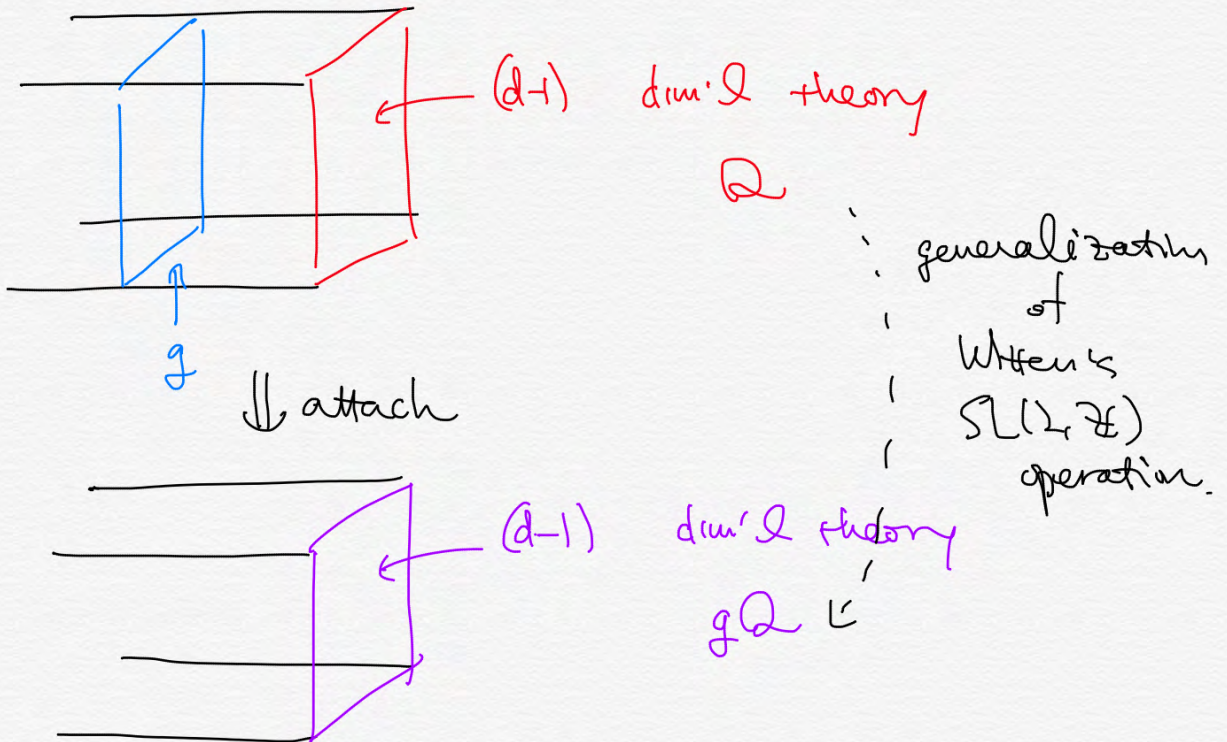 (d-1) dim'l theory
Q
g
generalization
of
Witten's
SL(2, Z)
operation.
⇓ attach
(d-1) dim'l theory
gQ